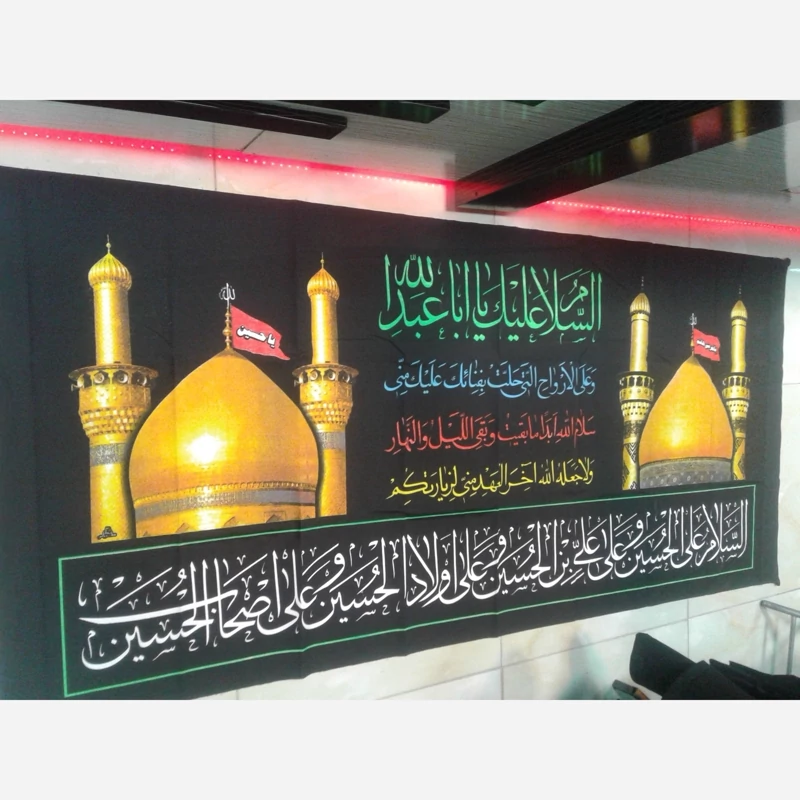 السلام علیك یا ابا عبد الله
وعلی الارواح التی حلت بفنائك علیك منی
سلام الله ابدا ما بقیت و بقی اللیل والنهار
ولا جعله الله آخر العهد منی لزیارتکم
یا حسین
السلام علی الحسین وعلی علی بن الحسین وعلی اولاد الحسین وعلی اصحاب الحسین